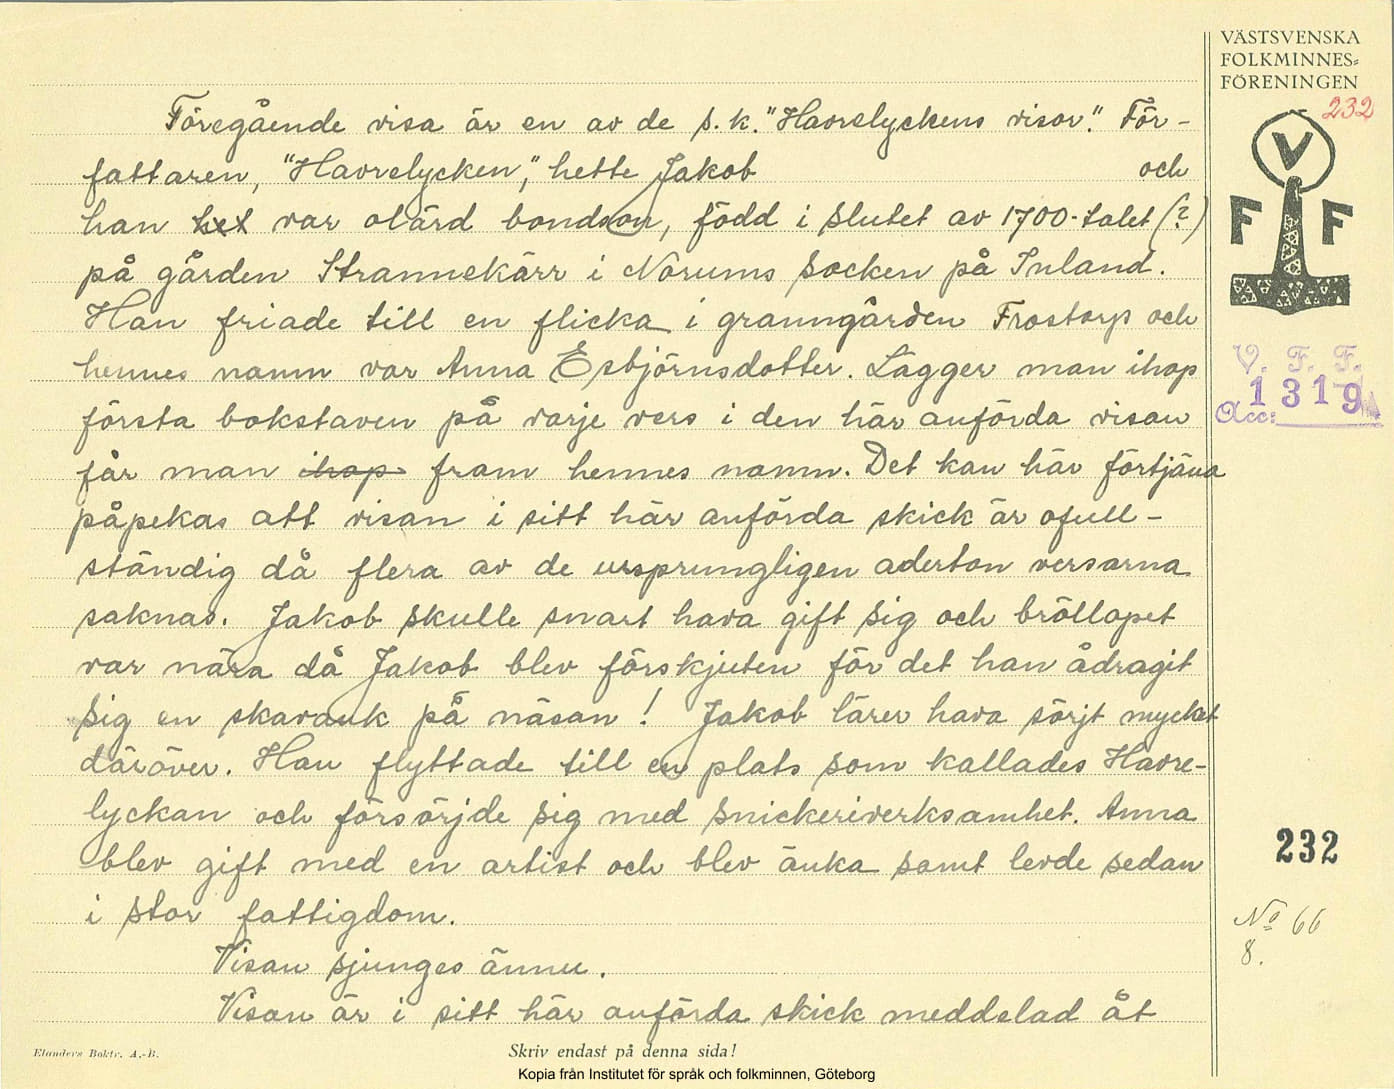 VÄSTSVENSKA
FOLKMINNES-
FÖRENINGEN
232
V
F F
V. F. F.
Acc: 1319
Föregående visa är en av de s.k. "Havrelyckens visor". För-
fattaren, "Havrelycken", hette Jakob och
han het var olärd bondson, född i slutet av 1700-talet (?)
på gården Strannekärr i Norums socken på Inland.
Han friade till en flicka i granngården Frostorp och
hennes namn var Anna Esbjörnsdotter. Lägger man ihop
första bokstaven på varje vers i den här anförda visan
får man ihop fram hennes namn. Det kan här förtjäna
påpekas att visan i sitt här anförda skick är ofull-
ständig då flera av de ursprungligen aderton versarna
saknas. Jakob skulle snart hava gift sig och bröllopet
var nära då Jakob blev förskjuten för det han ådragit
sig en skavank på näsan! Jakob lärer hava sörjt mycket
däröver. Han flyttade till en plats som kallades Havre-
lyckan och försörjde sig med snickeriverksamhet. Anna
blev gift med en artist och blev änka samt levde sedan
i stor fattigdom.
Visan sjunges ännu.
Visan är i sitt här anförda skick meddelad åt
232
No 66
8.
Elanders Boktr. A.-B.
Skriv endast på denna sida!
Kopia från Institutet för språk och folkminnen, Göteborg